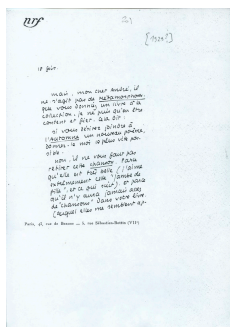 nrf
[1938]
18 juin
mais, mon cher André, il
ne s'agit pas de Métamorphoses.
que vous donniez un livre à la
collection, je ne puis qu'en être
content et fier. Cela dit.
si vous désirez joindre à
l'Automne un nouveau poème,
donnez-le moi le plus vite pos-
sible.
non, il ne vous faut pas
retirer cette chanson. Parce
qu'elle est très belle (j'aime
extrêmement cette "jambe de
fille", et ce qui suit), et parce
qu'il n'y aura jamais assez
de "chansons" dans votre livre.
(lequel elles me semblent ap-
Paris, 43, rue de Beaune — 5, rue Sébastien-Bottin (VIIe)